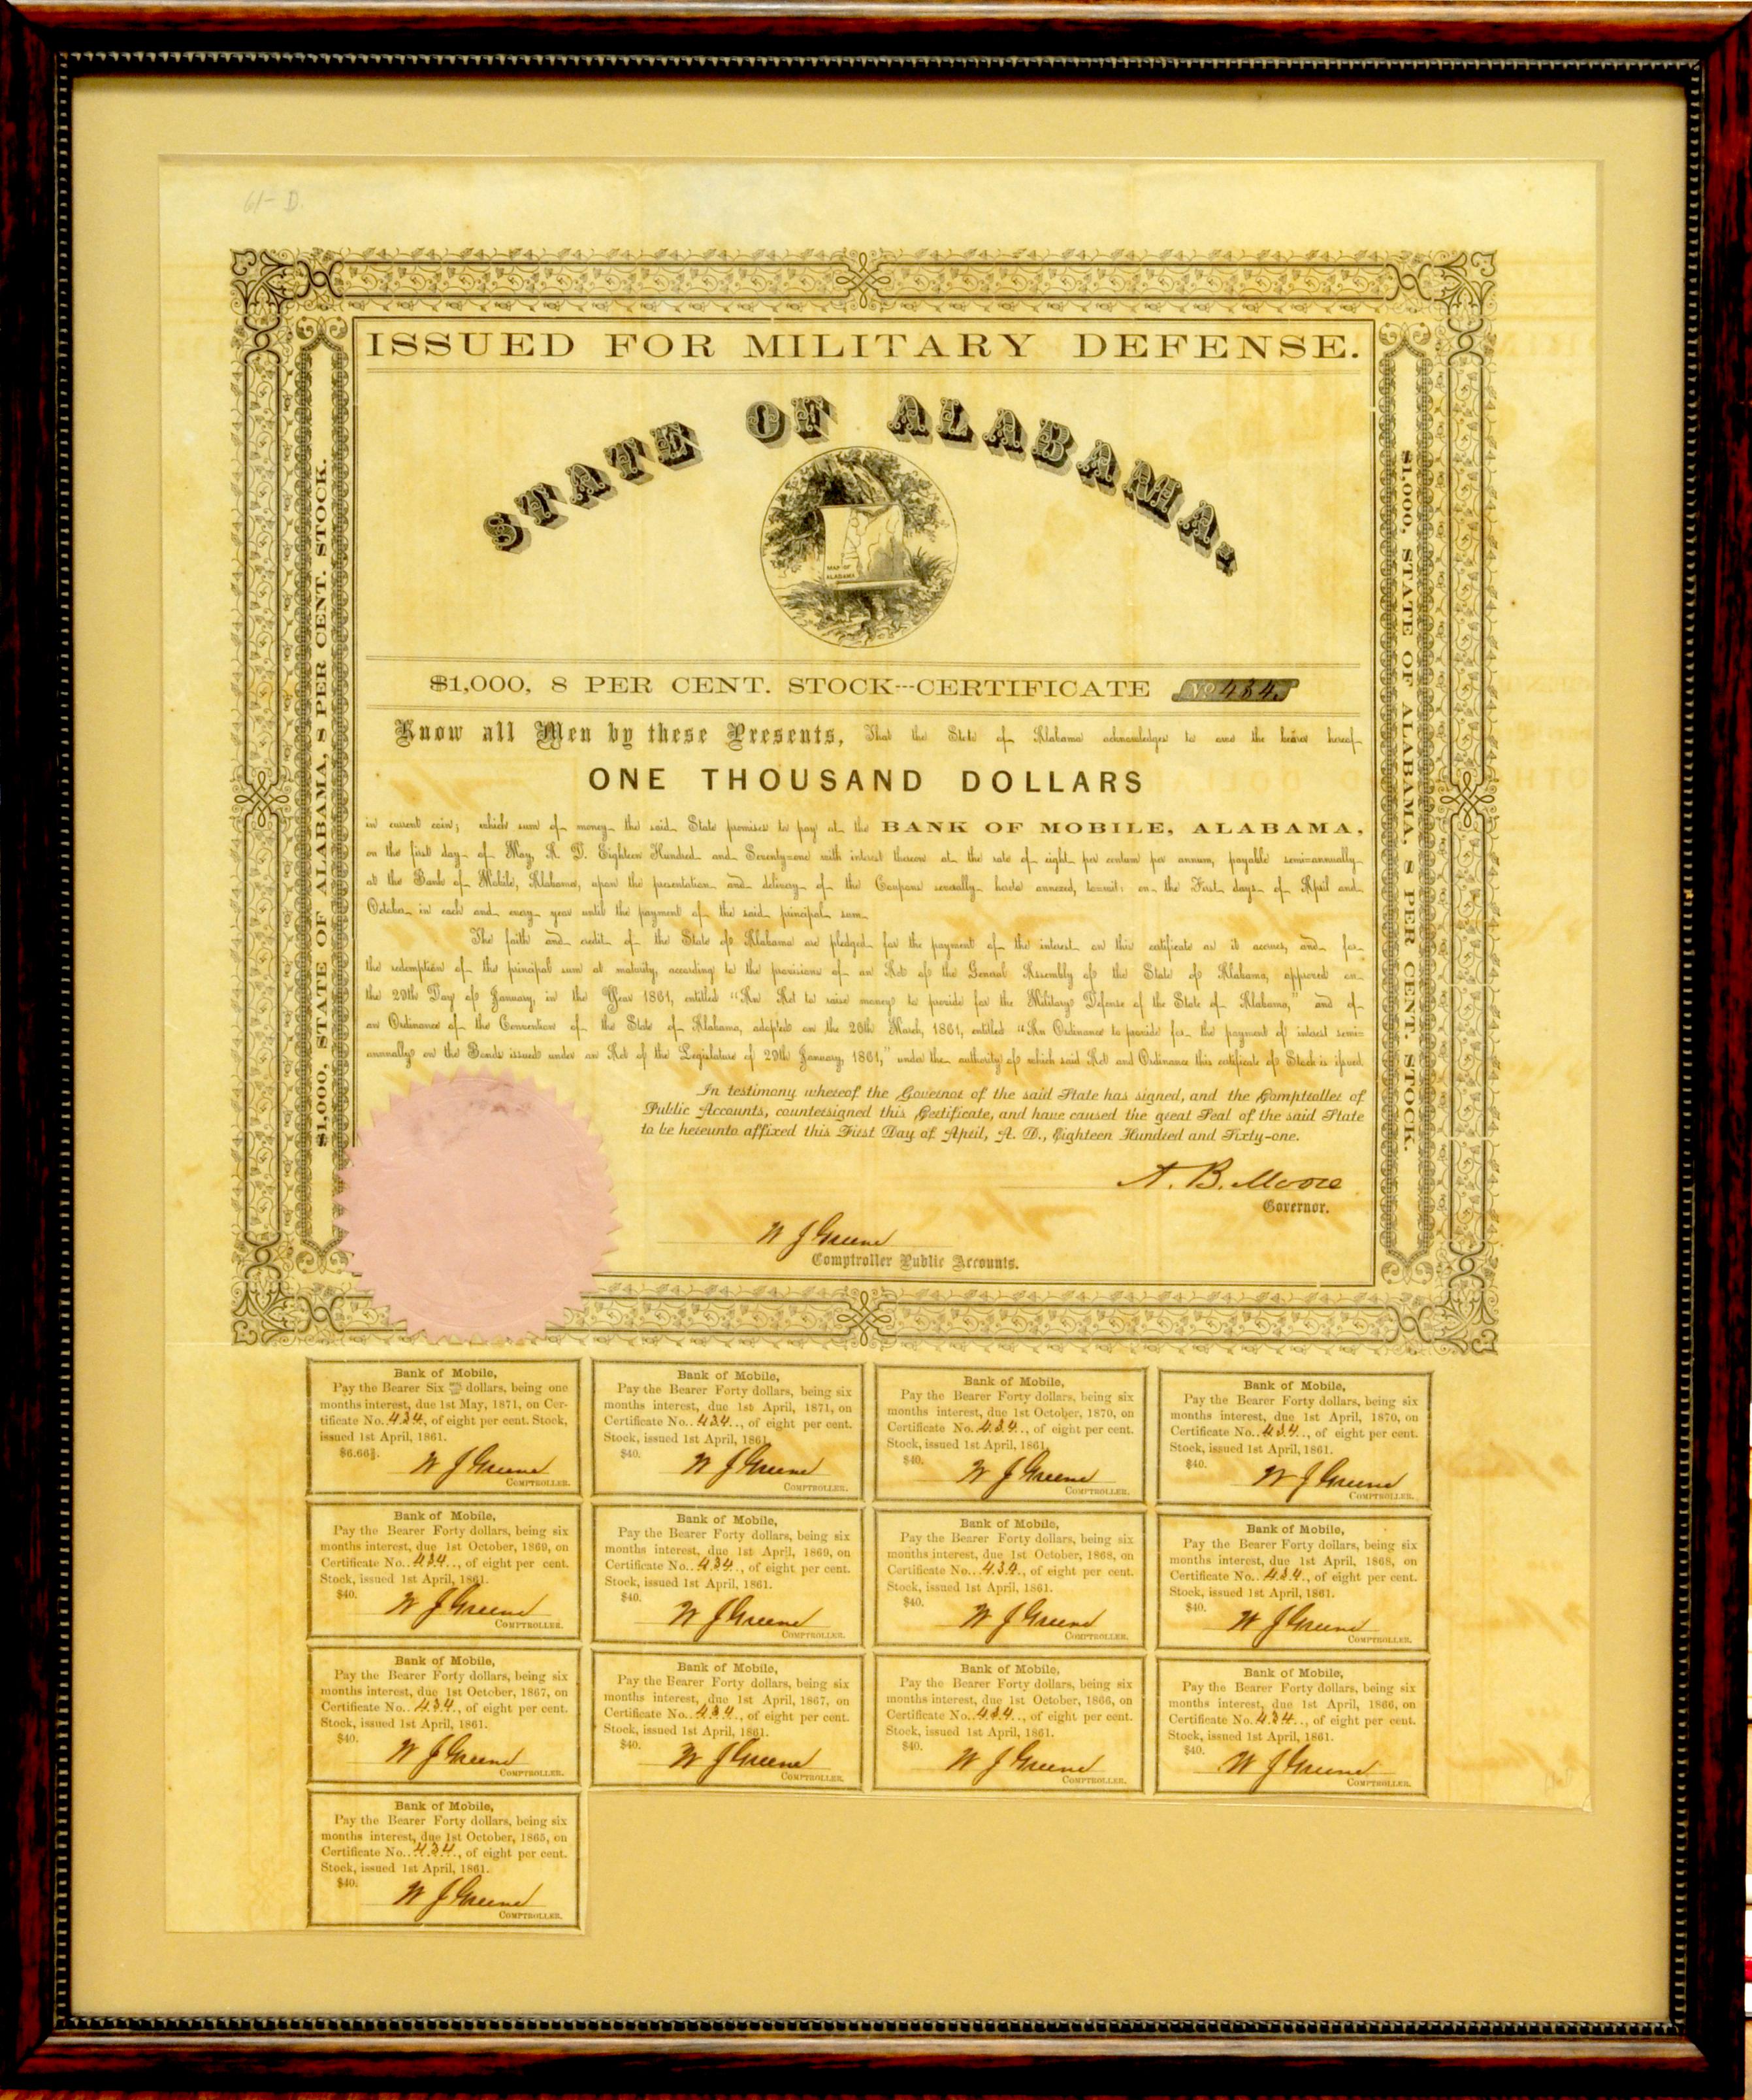 61-D.
ISSUED FOR MILITARY DEFENSE.
STATE OF ALABAMA,
MAP OF
ALABAMA
$1,000, STATE OF ALABAMA, 8 PER CENT. STOCK.
$1,000, STATE OF ALABAMA, 8 PER CENT. STOCK.
$1,000, 8 PER CENT. STOCK---CERTIFICATE No 434.
Know all Men by these Presents, That the State of Alabama acknowledges to owe the bearer hereof
ONE THOUSAND DOLLARS
in current coin; which sum of money the said State promises to pay at the BANK OF MOBILE, ALABAMA,
on the first day of May, A. D. Eighteen Hundred and Seventy=one with interest thereon at the rate of eight per centum per annum, payable semi=annually
at the Bank of Mobile, Alabama, upon the presentation and delivery of the Coupons severally hereto annexed, to=wit: on the First days of April and
October in each and every year until the payment of the said principal sum.
The faith and credit of the State of Alabama are pledged for the payment of the interest on this certificate as it accrues, and for
the redemption of the principal sum at maturity, according to the provisions of an Act of the General Assembly of the State of Alabama, approved on
the 29th Day of January, in the Year 1861, entitled "An Act to raise money to provide for the Military Defense of the State of Alabama," and of
an Ordinance of the Convention of the State of Alabama, adopted on the 20th March, 1861, entitled "An Ordinance to provide for the payment of interest semi=
annually on the Bonds issued under an Act of the Legislature of 29th January, 1861," under the authority of which said Act and Ordinance this certificate of Stock is issued.
In testimony whereof the Governor of the said State has signed, and the Comptroller of
Public Accounts, countersigned this Certificate, and have caused the great Seal of the said State
to be hereunto affixed this First Day of April, A. D., Eighteen Hundred and Sixty-one.
A. B. Moore
Governor.
W J Greene
Comptroller Public Accounts.
Bank of Mobile,
Pay the Bearer Six dollars, being one
months interest, due 1st May, 1871, on Cer-
tificate No. 434, of eight per cent. Stock,
issued 1st April, 1861.
$6.66⅔.
W J Greene
COMPTROLLER.
Bank of Mobile,
Pay the Bearer Forty dollars, being six
months interest, due 1st April, 1871, on
Certificate No. 434, of eight per cent.
Stock, issued 1st April, 1861.
$40.
W J Greene
COMPTROLLER.
Bank of Mobile,
Pay the Bearer Forty dollars, being six
months interest, due 1st October, 1870, on
Certificate No. 434, of eight per cent.
Stock, issued 1st April, 1861.
$40.
W J Greene
COMPTROLLER.
Bank of Mobile,
Pay the Bearer Forty dollars, being six
months interest, due 1st April, 1870, on
Certificate No. 434, of eight per cent.
Stock, issued 1st April, 1861.
$40.
W J Greene
COMPTROLLER.
Bank of Mobile,
Pay the Bearer Forty dollars, being six
months interest, due 1st October, 1869, on
Certificate No. 434, of eight per cent.
Stock, issued 1st April, 1861.
$40.
W J Greene
COMPTROLLER.
Bank of Mobile,
Pay the Bearer Forty dollars, being six
months interest, due 1st April, 1869, on
Certificate No. 434, of eight per cent.
Stock, issued 1st April, 1861.
$40.
W J Greene
COMPTROLLER.
Bank of Mobile,
Pay the Bearer Forty dollars, being six
months interest, due 1st October, 1868, on
Certificate No. 434, of eight per cent.
Stock, issued 1st April, 1861.
$40.
W J Greene
COMPTROLLER.
Bank of Mobile,
Pay the Bearer Forty dollars, being six
months interest, due 1st April, 1868, on
Certificate No. 434, of eight per cent.
Stock, issued 1st April, 1861.
$40.
W J Greene
COMPTROLLER.
Bank of Mobile,
Pay the Bearer Forty dollars, being six
months interest, due 1st October, 1867, on
Certificate No. 434, of eight per cent.
Stock, issued 1st April, 1861.
$40.
W J Greene
COMPTROLLER.
Bank of Mobile,
Pay the Bearer Forty dollars, being six
months interest, due 1st April, 1867, on
Certificate No. 434, of eight per cent.
Stock, issued 1st April, 1861.
$40.
W J Greene
COMPTROLLER.
Bank of Mobile,
Pay the Bearer Forty dollars, being six
months interest, due 1st October, 1866, on
Certificate No. 434, of eight per cent.
Stock, issued 1st April, 1861.
$40.
W J Greene
COMPTROLLER.
Bank of Mobile,
Pay the Bearer Forty dollars, being six
months interest, due 1st April, 1866, on
Certificate No. 434, of eight per cent.
Stock, issued 1st April, 1861.
$40.
W J Greene
COMPTROLLER.
Bank of Mobile,
Pay the Bearer Forty dollars, being six
months interest, due 1st October, 1865, on
Certificate No. 434, of eight per cent.
Stock, issued 1st April, 1861.
$40.
W J Greene
COMPTROLLER.